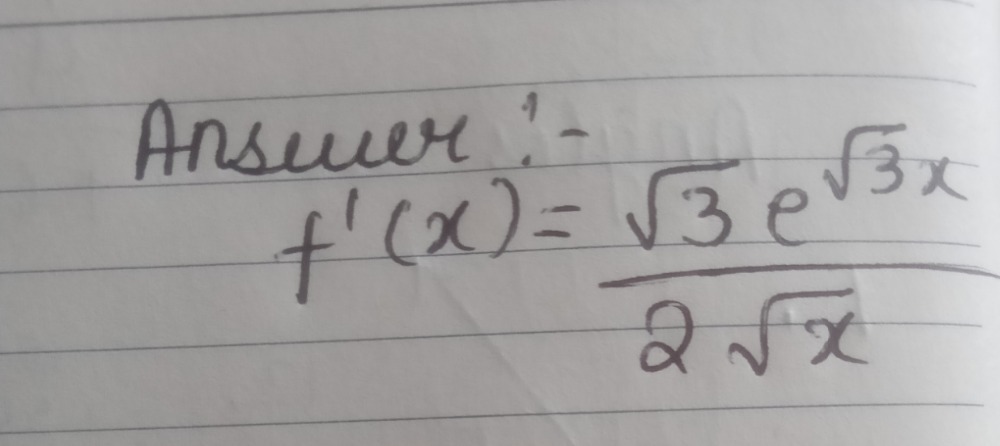 Answer :-
f'(x) = √3 e^√3x / 2√x